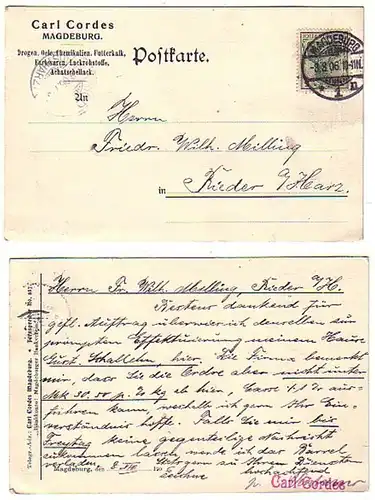 Carl Cordes
MAGDEBURG.
Drogen, Oele, Chemikalien, Futterkalk,
Farbwaren, Lackrohstoffe,
Achatschellack.
Postkarte.
MAGDEBURG
-8.8.06.
1 n
An
Herrn
Friedr. Wilh. Melling
in Rieder a/Harz.
Herrn Fr. Wilh. Melling, Rieder a/H.
Bestens dankend für
gefl. Auftrag überwies ich denselben zur
prompten Effektuierung meinem Hause
Gust. Schallehn, hier. Die Firma bemerkt
mir, dass sie die Ordre aber nicht unter
Mk 30,50 p. % kg ab hier, Casse aus-
führen kann, weshalb ich gern Ihr Ein-
verständnis hoffe. Falls Sie mir bis
Freitag keine gegenteilige Nachricht
lassen, werde ich das Barrel
verladen. Stets gern zu Ihren Diensten
Magdeburg, den 8/VIII 190
Carl Cordes
Telegr.-Adr.: Carl Cordes Magdeburg.